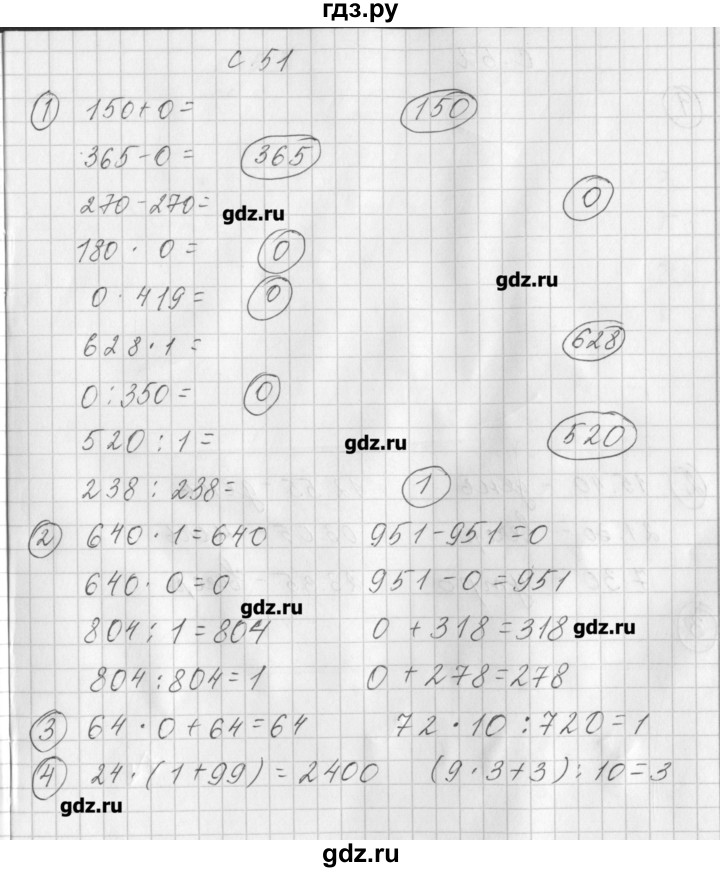 гдз.ру
с. 51
1 150+0= 150
365-0= 365
270-270= 0
gdz.ru
180 · 0 = 0
gdz.ru
0 · 419 = 0
628 · 1 = 628
0 : 350 = 0
520 : 1 = 520
gdz.ru
238 : 238= 1
2 640 · 1 = 640 951-951=0
640 · 0 = 0 951-0=951
gdz.ru
804 : 1 = 804 0+318=318
gdz.ru
804 : 804 = 1 0+278=278
3 64 · 0 + 64 = 64 72 · 10 : 720 = 1
4 24 · (1+99) = 2400 (9 · 3+3) : 10 = 3
gdz.ru
gdz.ru